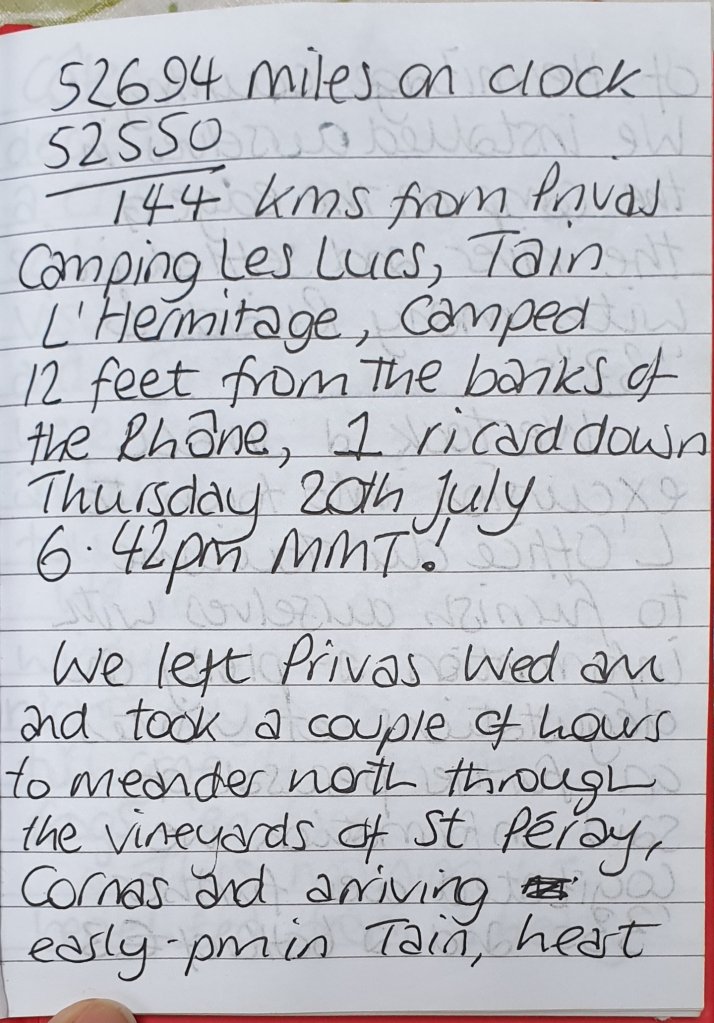 52694 miles on clock
52550
144 kms from Privas
Camping Les Lucs, Tain
L'Hermitage, Camped
12 feet from the banks of
the Rhône, 1 ricard down
Thursday 20th July
6.42pm MMT!
We left Privas Wed am
and took a couple of hours
to meander north through
the vineyards of St Péray,
Cornas and arriving
early-pm in Tain, heart